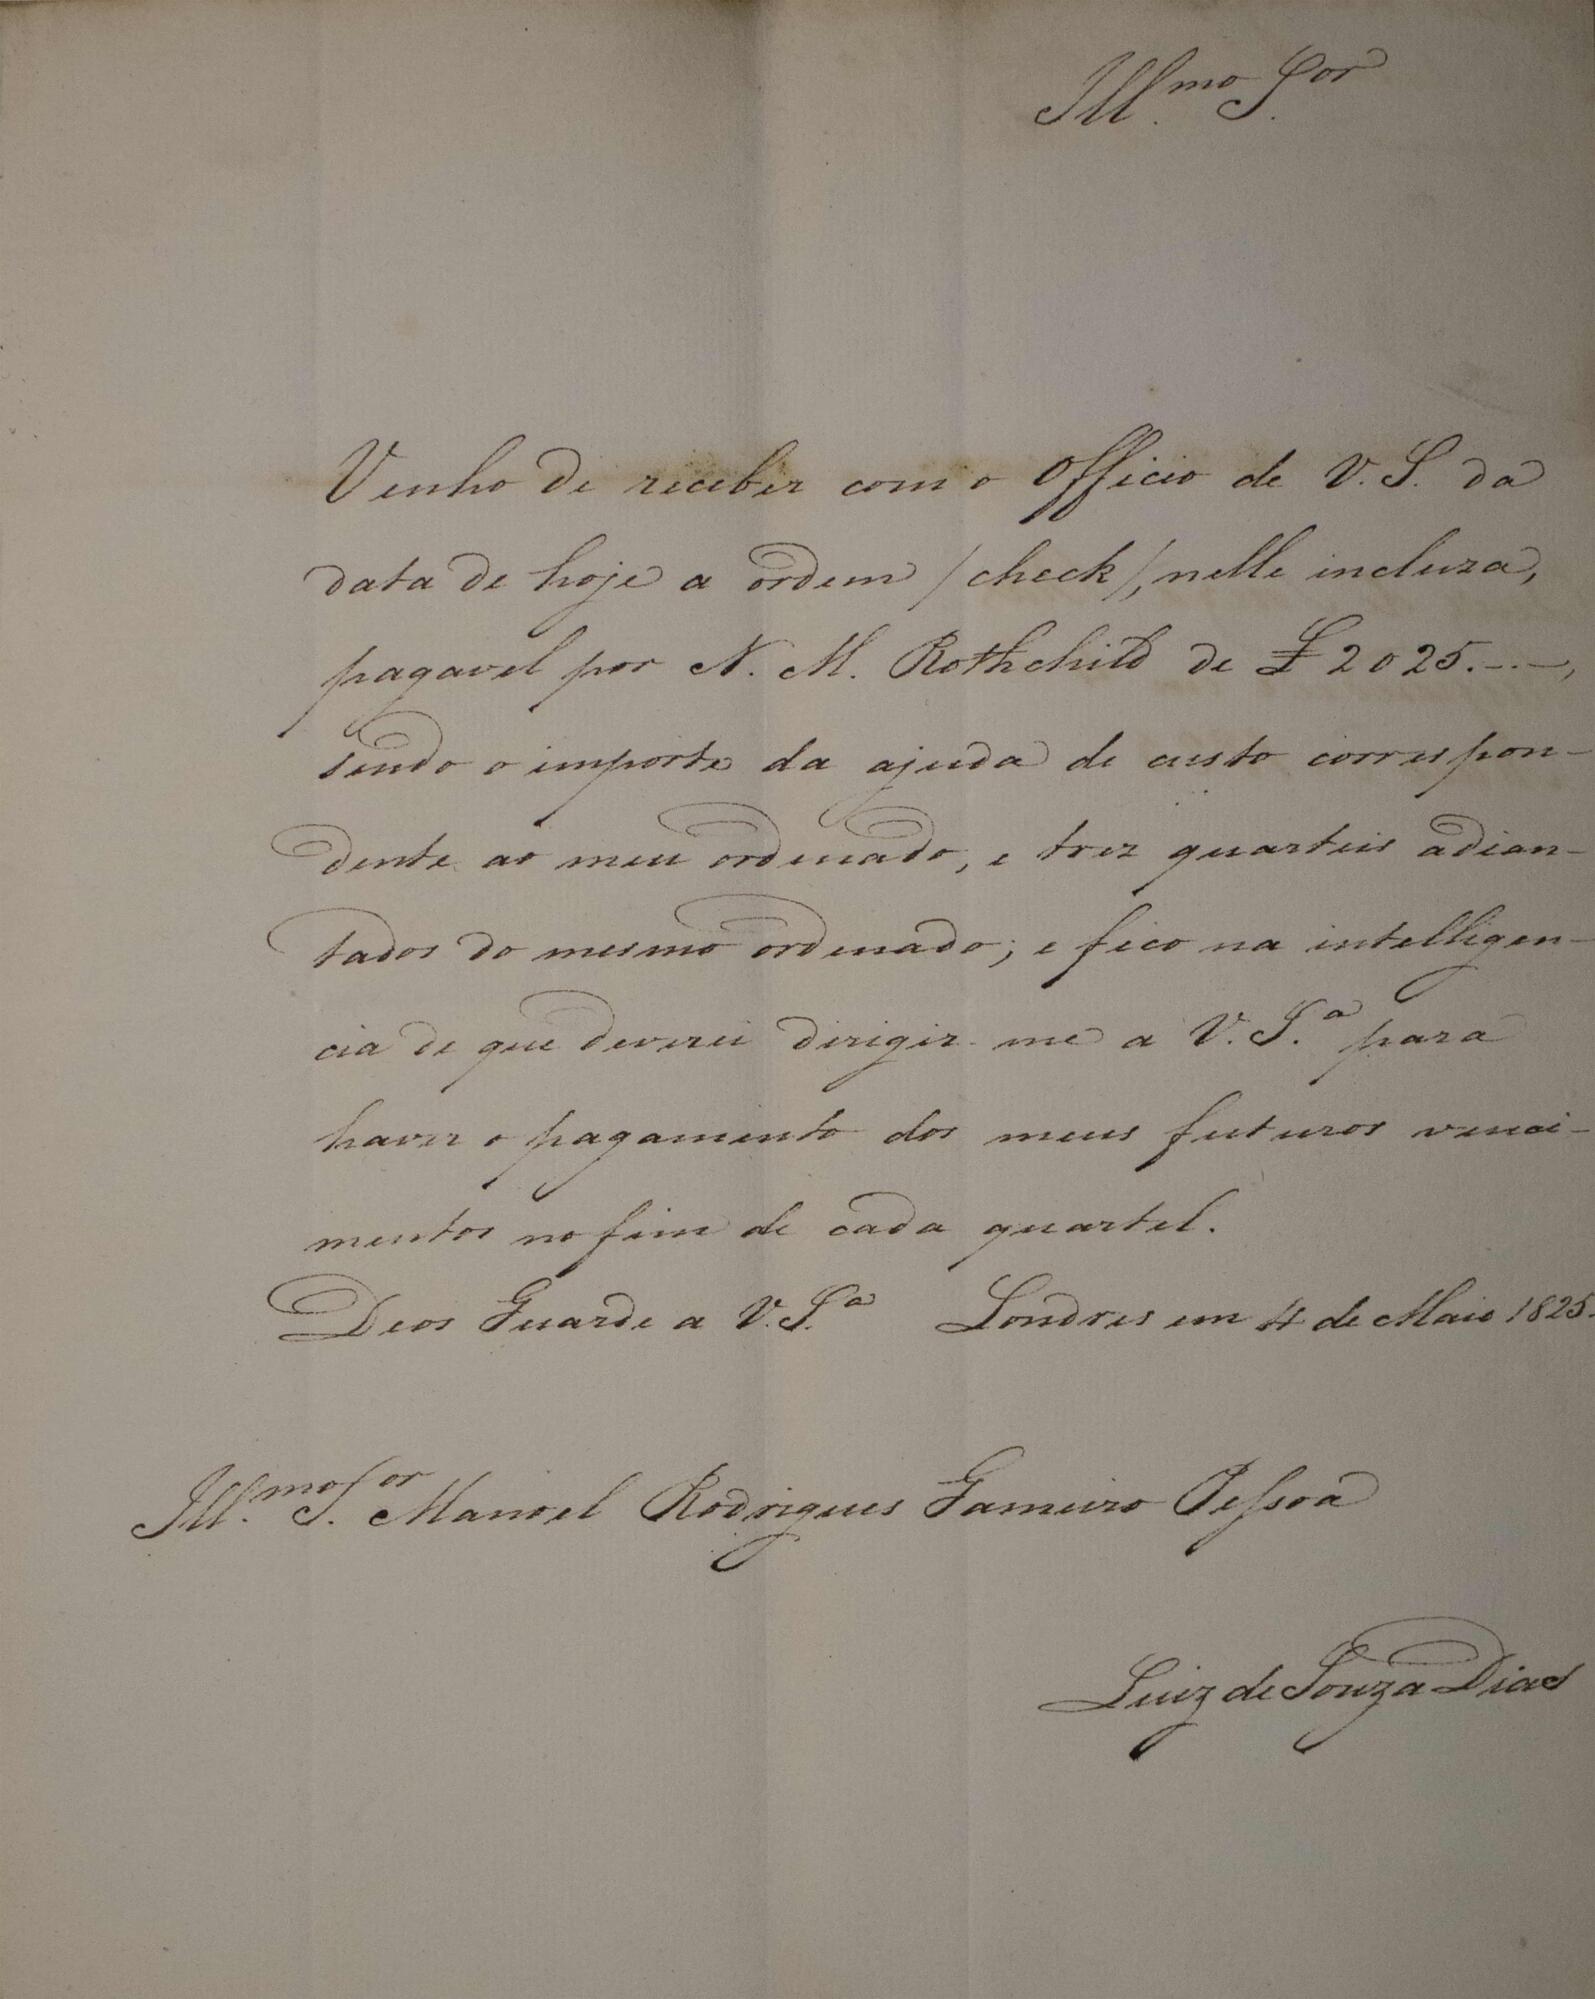 Ill.mo S.or
Venho de receber com o Officio de V. S. da
data de hoje a ordem /check/, nelle incluza,
pagavel por N. M. Rothchild de £ 2025.-.-,
sendo o importe da ajuda de custo correspon-
dente ao meu ordenado, e trez quarteis adian-
tados do mesmo ordenado; e fico na intelligen-
cia de que deverei dirigir-me a V. S.a para
haver o pagamento dos meus futuros venci-
mentos no fim de cada quartel.
Deos Guarde a V. S.a Londres em 4 de Maio 1825.
Ill.mo S.or Manoel Rodrigues Gameiro Pessoa
Luiz de Souza Dias